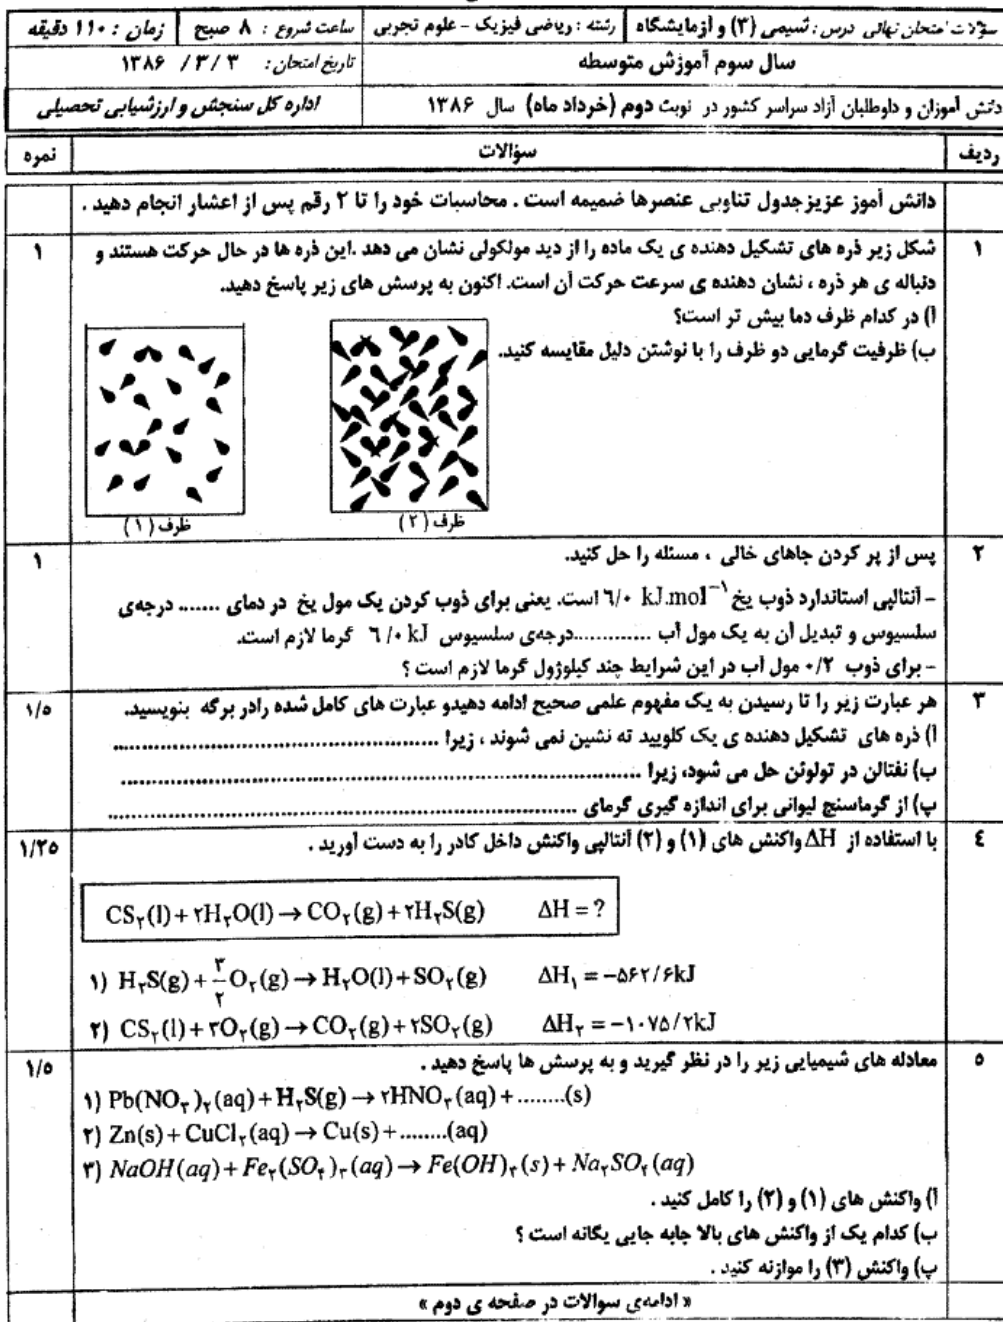 سؤالات امتحان نهائی درس : شیمی (۳) و آزمایشگاه
رشته : ریاضی فیزیک - علوم تجربی
ساعت شروع : ۸ صبح
زمان : ۱۱۰ دقیقه
سال سوم آموزش متوسطه
تاریخ امتحان : ۳ / ۳ / ۱۳۸۶
دانش آموزان و داوطلبان آزاد سراسر کشور در نوبت دوم (خرداد ماه) سال ۱۳۸۶
اداره کل سنجش و ارزشیابی تحصیلی
ردیف
سؤالات
نمره
دانش آموز عزیز جدول تناوبی عنصرها ضمیمه است . محاسبات خود را تا ۲ رقم پس از اعشار انجام دهید .
۱
شکل زیر ذره های تشکیل دهنده ی یک ماده را از دید مولکولی نشان می دهد .این ذره ها در حال حرکت هستند و
۱
دنباله ی هر ذره ، نشان دهنده ی سرعت حرکت آن است. اکنون به پرسش های زیر پاسخ دهید.
آ) در کدام ظرف دما بیش تر است؟
ب) ظرفیت گرمایی دو ظرف را با نوشتن دلیل مقایسه کنید.
ظرف (۲)
ظرف (۱)
۲
پس از پر کردن جاهای خالی ، مسئله را حل کنید.
۱
- آنتالپی استاندارد ذوب یخ ۶/۰ kJ.mol⁻¹ است. یعنی برای ذوب کردن یک مول یخ در دمای ....... درجه‌ی
سلسیوس و تبدیل آن به یک مول آب .............درجه‌ی سلسیوس ۶/۰ kJ گرما لازم است.
- برای ذوب ۰/۲ مول آب در این شرایط چند کیلوژول گرما لازم است ؟
۳
هر عبارت زیر را تا رسیدن به یک مفهوم علمی صحیح ادامه دهیدو عبارت های کامل شده رادر برگه بنویسید.
۱/۵
آ) ذره های تشکیل دهنده ی یک کلویید ته نشین نمی شوند ، زیرا ..................................................
ب) نفتالن در تولوئن حل می شود، زیرا ..................................................................................
پ) از گرماسنج لیوانی برای اندازه گیری گرمای ..........................................................................
۴
با استفاده از ΔH واکنش های (۱) و (۲) آنتالپی واکنش داخل کادر را به دست آورید .
۱/۲۵
CS₂(l) + ۲H₂O(l) → CO₂(g) + ۲H₂S(g) ΔH = ?
۱) H₂S(g) + ۳/۲ O₂(g) → H₂O(l) + SO₂(g) ΔH₁ = −۵۶۲/۶kJ
۲) CS₂(l) + ۳O₂(g) → CO₂(g) + ۲SO₂(g) ΔH₂ = −۱۰۷۵/۲kJ
۵
معادله های شیمیایی زیر را در نظر گیرید و به پرسش ها پاسخ دهید .
۱/۵
۱) Pb(NO₃)₂(aq) + H₂S(g) → ۲HNO₃(aq) + ........(s)
۲) Zn(s) + CuCl₂(aq) → Cu(s) + ........(aq)
۳) NaOH(aq) + Fe₂(SO₄)₃(aq) → Fe(OH)₃(s) + Na₂SO₄(aq)
آ) واکنش های (۱) و (۲) را کامل کنید .
ب) کدام یک از واکنش های بالا جابه جایی یگانه است ؟
پ) واکنش (۳) را موازنه کنید .
« ادامه‌ی سوالات در صفحه ی دوم »